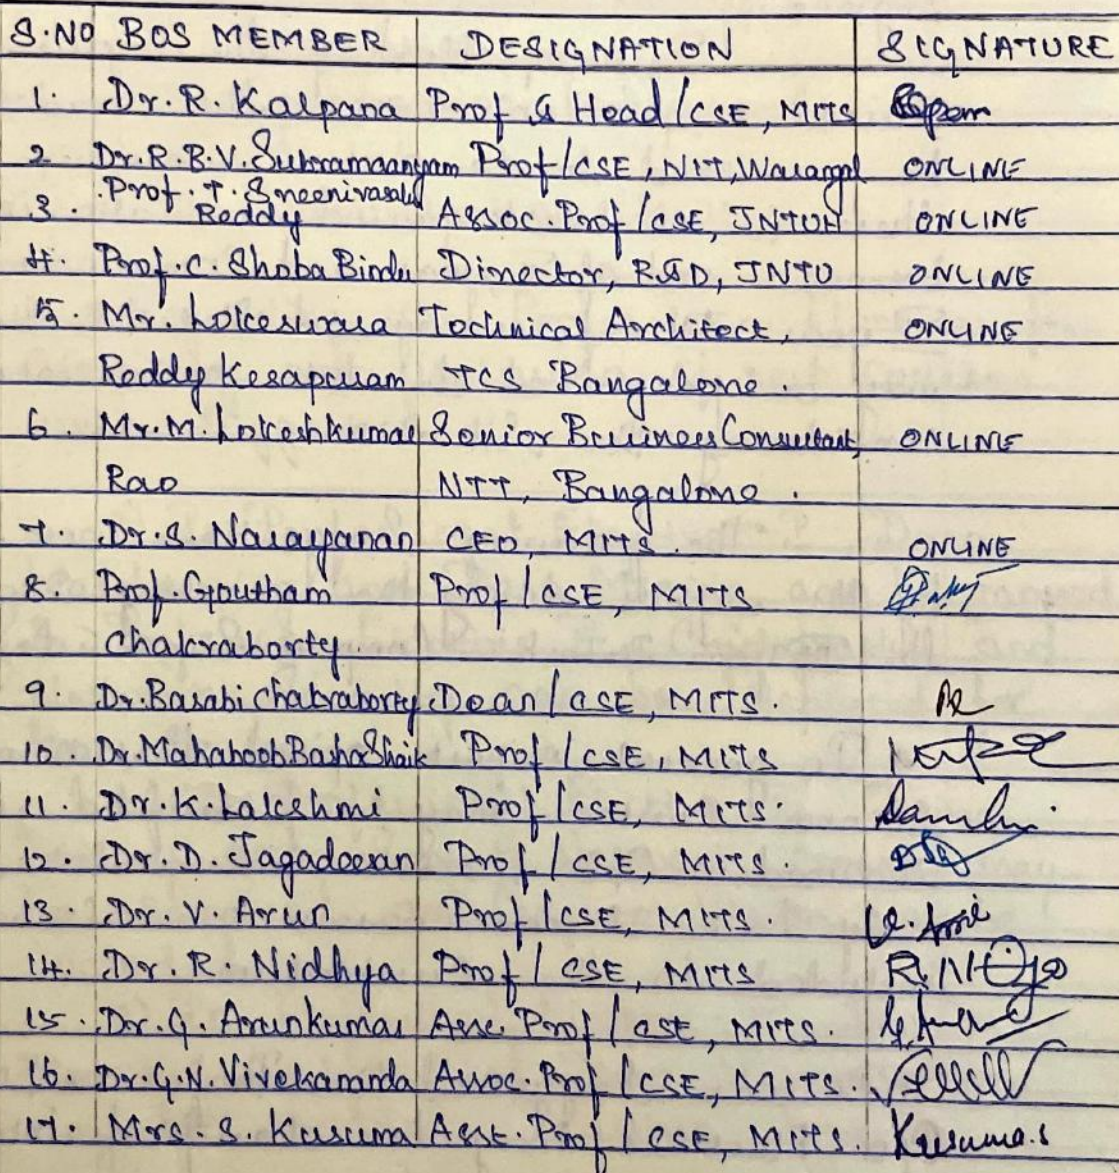 S.NO BOS MEMBER DESIGNATION SIGNATURE
1. Dr. R. Kalpana Prof & Head / CSE, MITS
2 Dr. R. B. V. Subramaanyam Prof / CSE, NIT, Warangal ONLINE
Prof. T. Sreenivasulu
3. Reddy Assoc. Prof / CSE, JNTUH ONLINE
4. Prof. C. Shoba Bindu Director, R&D, JNTU ONLINE
5. Mr. Lokeswara Technical Architect, ONLINE
Reddy Kesapuram TCS Bangalore.
6. Mr. M. Lokeshkumar Senior Business Consultant, ONLINE
Rao NTT, Bangalore.
7. Dr. S. Narayanan CEO, MITS. ONLINE
8. Prof. Goutham Prof / CSE, MITS
Chakraborty.
9. Dr. Basabi Chakraborty Dean / CSE, MITS.
10. Dr. Mahaboob Basha Shaik Prof / CSE, MITS
11. Dr. K. Lakshmi Prof / CSE, MITS.
12. Dr. D. Jagadeesan Prof / CSE, MITS.
13. Dr. V. Arun Prof / CSE, MITS.
14. Dr. R. Nidhya Prof / CSE, MITS
15. Dr. G. Arunkumar Prof / CSE, MITS.
16. Dr. G. N. Vivekananda Assoc. Prof / CSE, MITS.
17. Mrs. S. Kusuma Asst. Prof / CSE, MITS. Kusuma.s